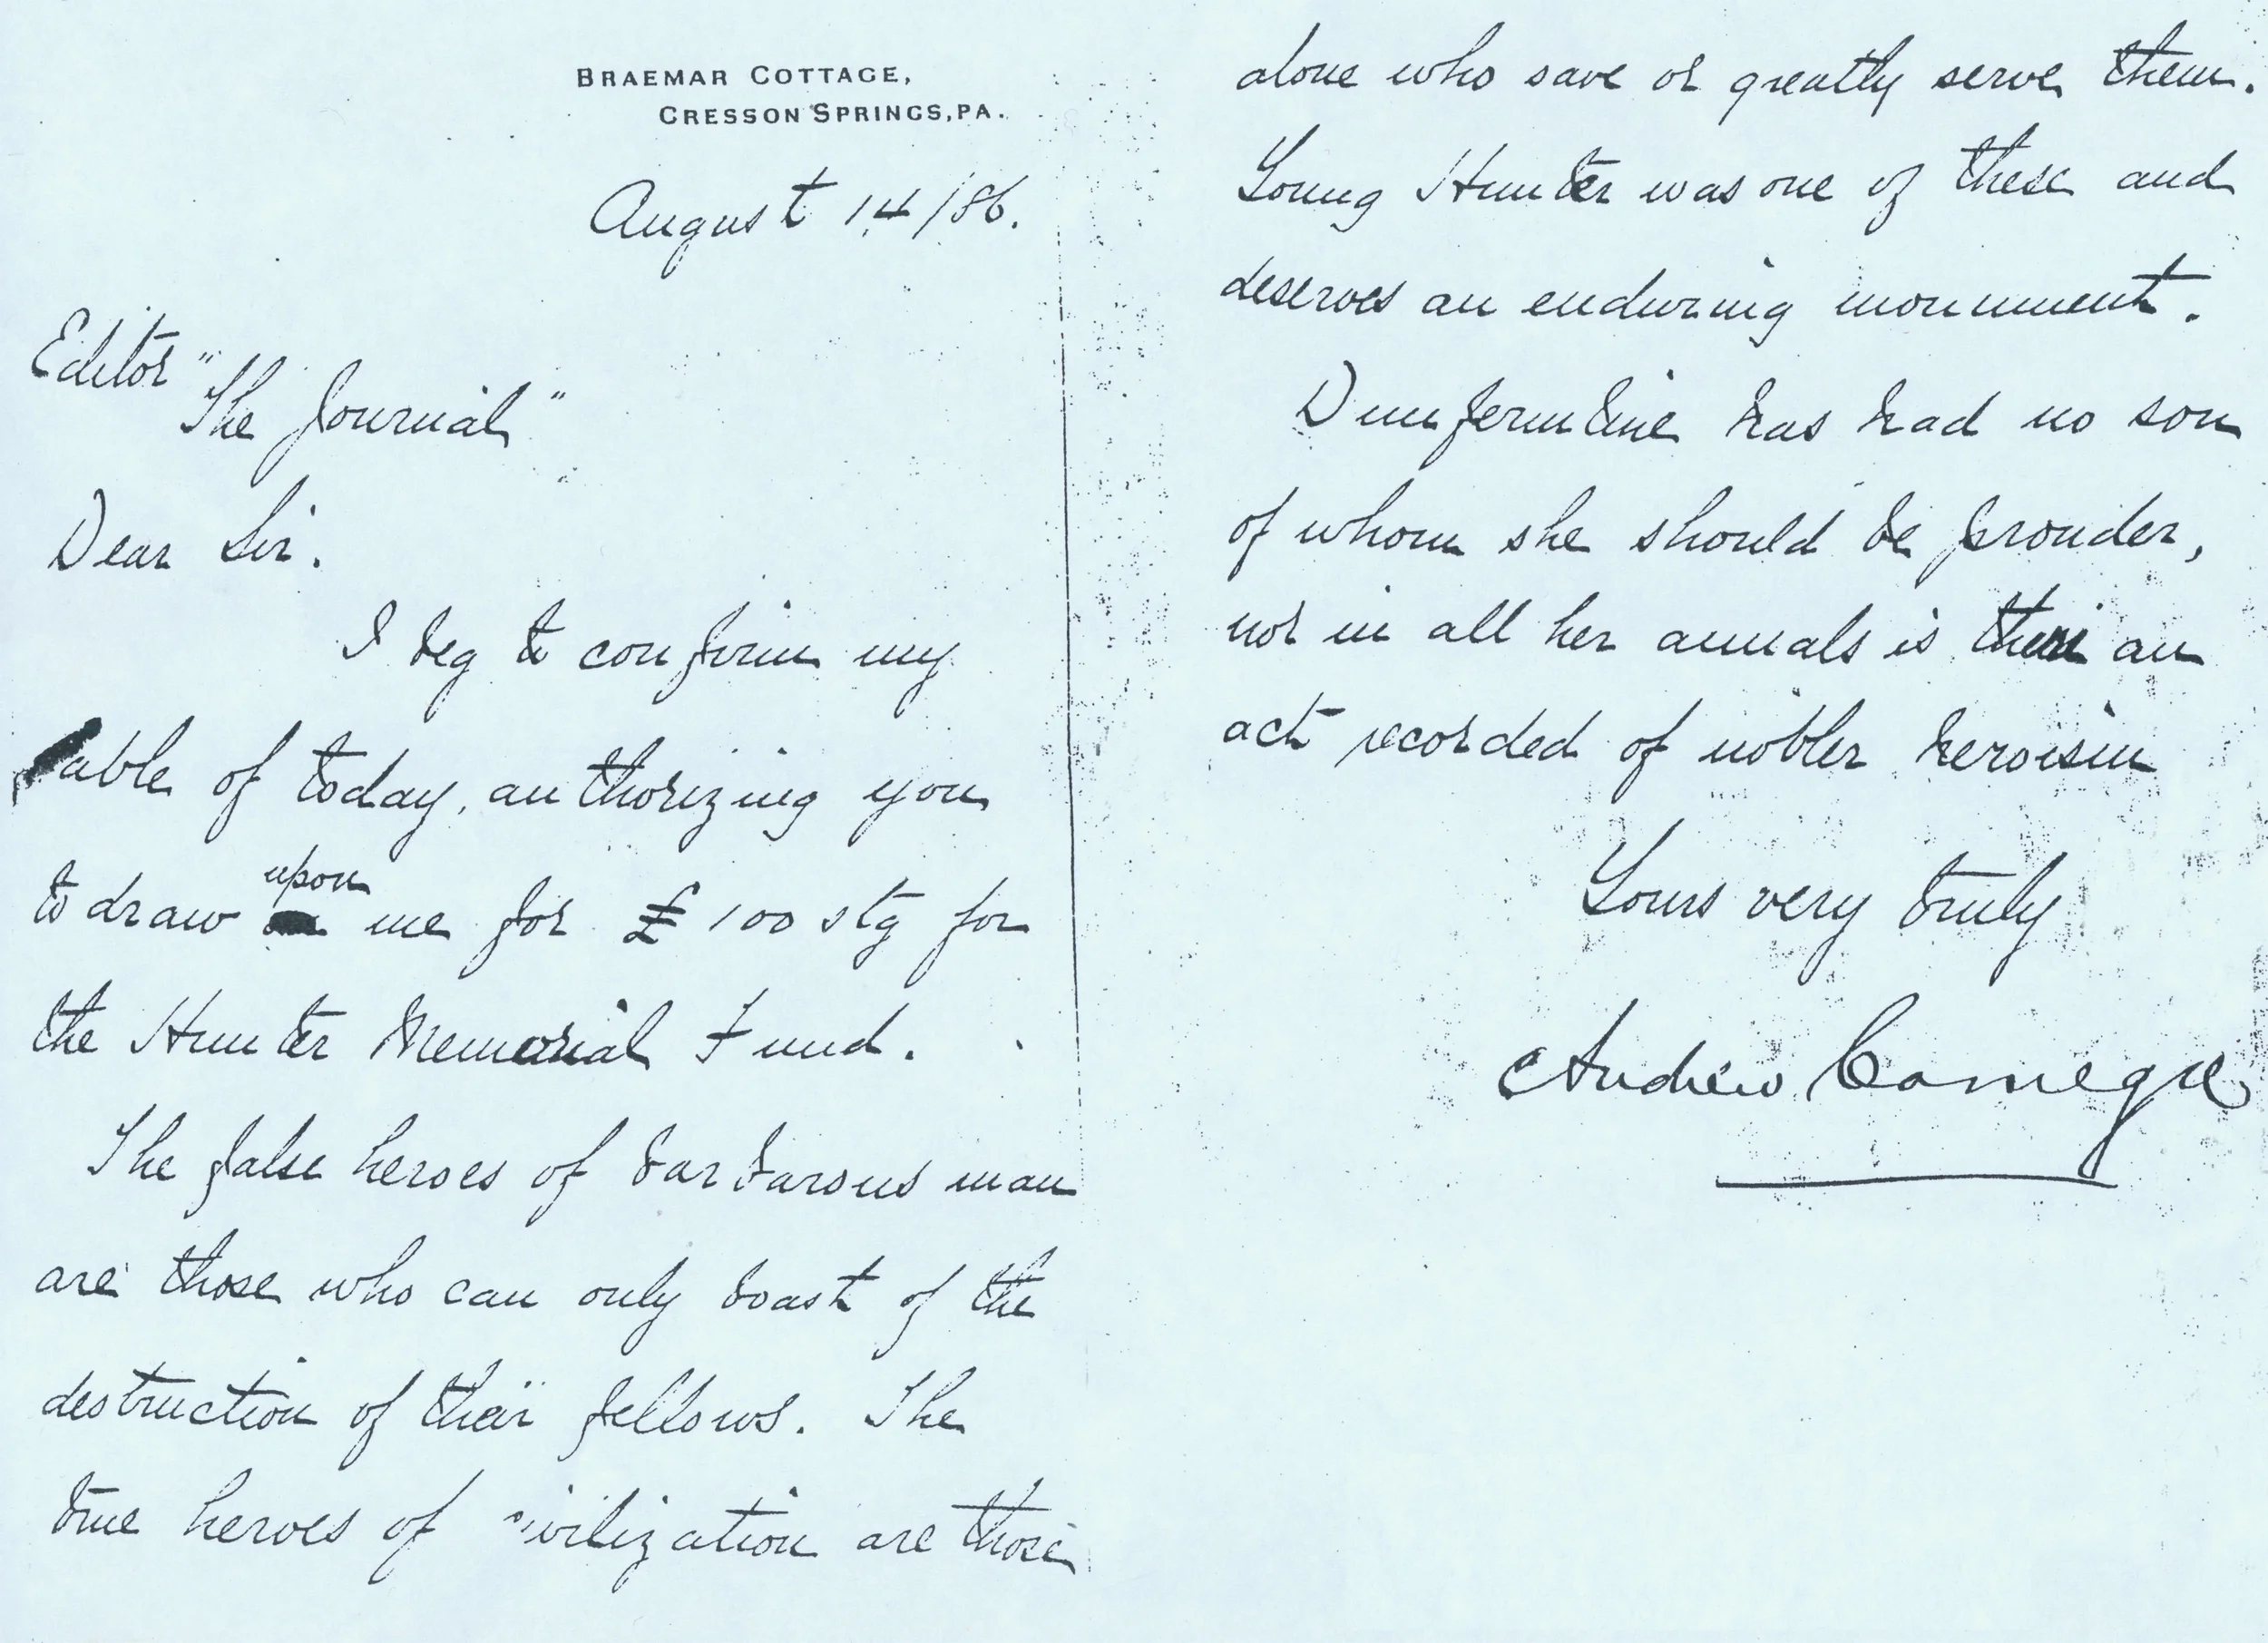 BRAEMAR COTTAGE,
CRESSON SPRINGS, PA.
August 14/86.
Editor "The Journal"
Dear Sir.
I beg to confirm my
cable of today, authorizing you
to draw upon me for £100 stg for
the Hunter Memorial Fund.
The false heroes of barbarous man
are those who can only boast of the
destruction of their fellows. The
true heroes of civilization are those
alone who save or greatly serve them.
Young Hunter was one of these and
deserves an enduring monument.
Dunfermline has had no son
of whom she should be prouder,
nor in all her annals is there an
act recorded of nobler heroism
Yours very truly
Andrew Carnegie